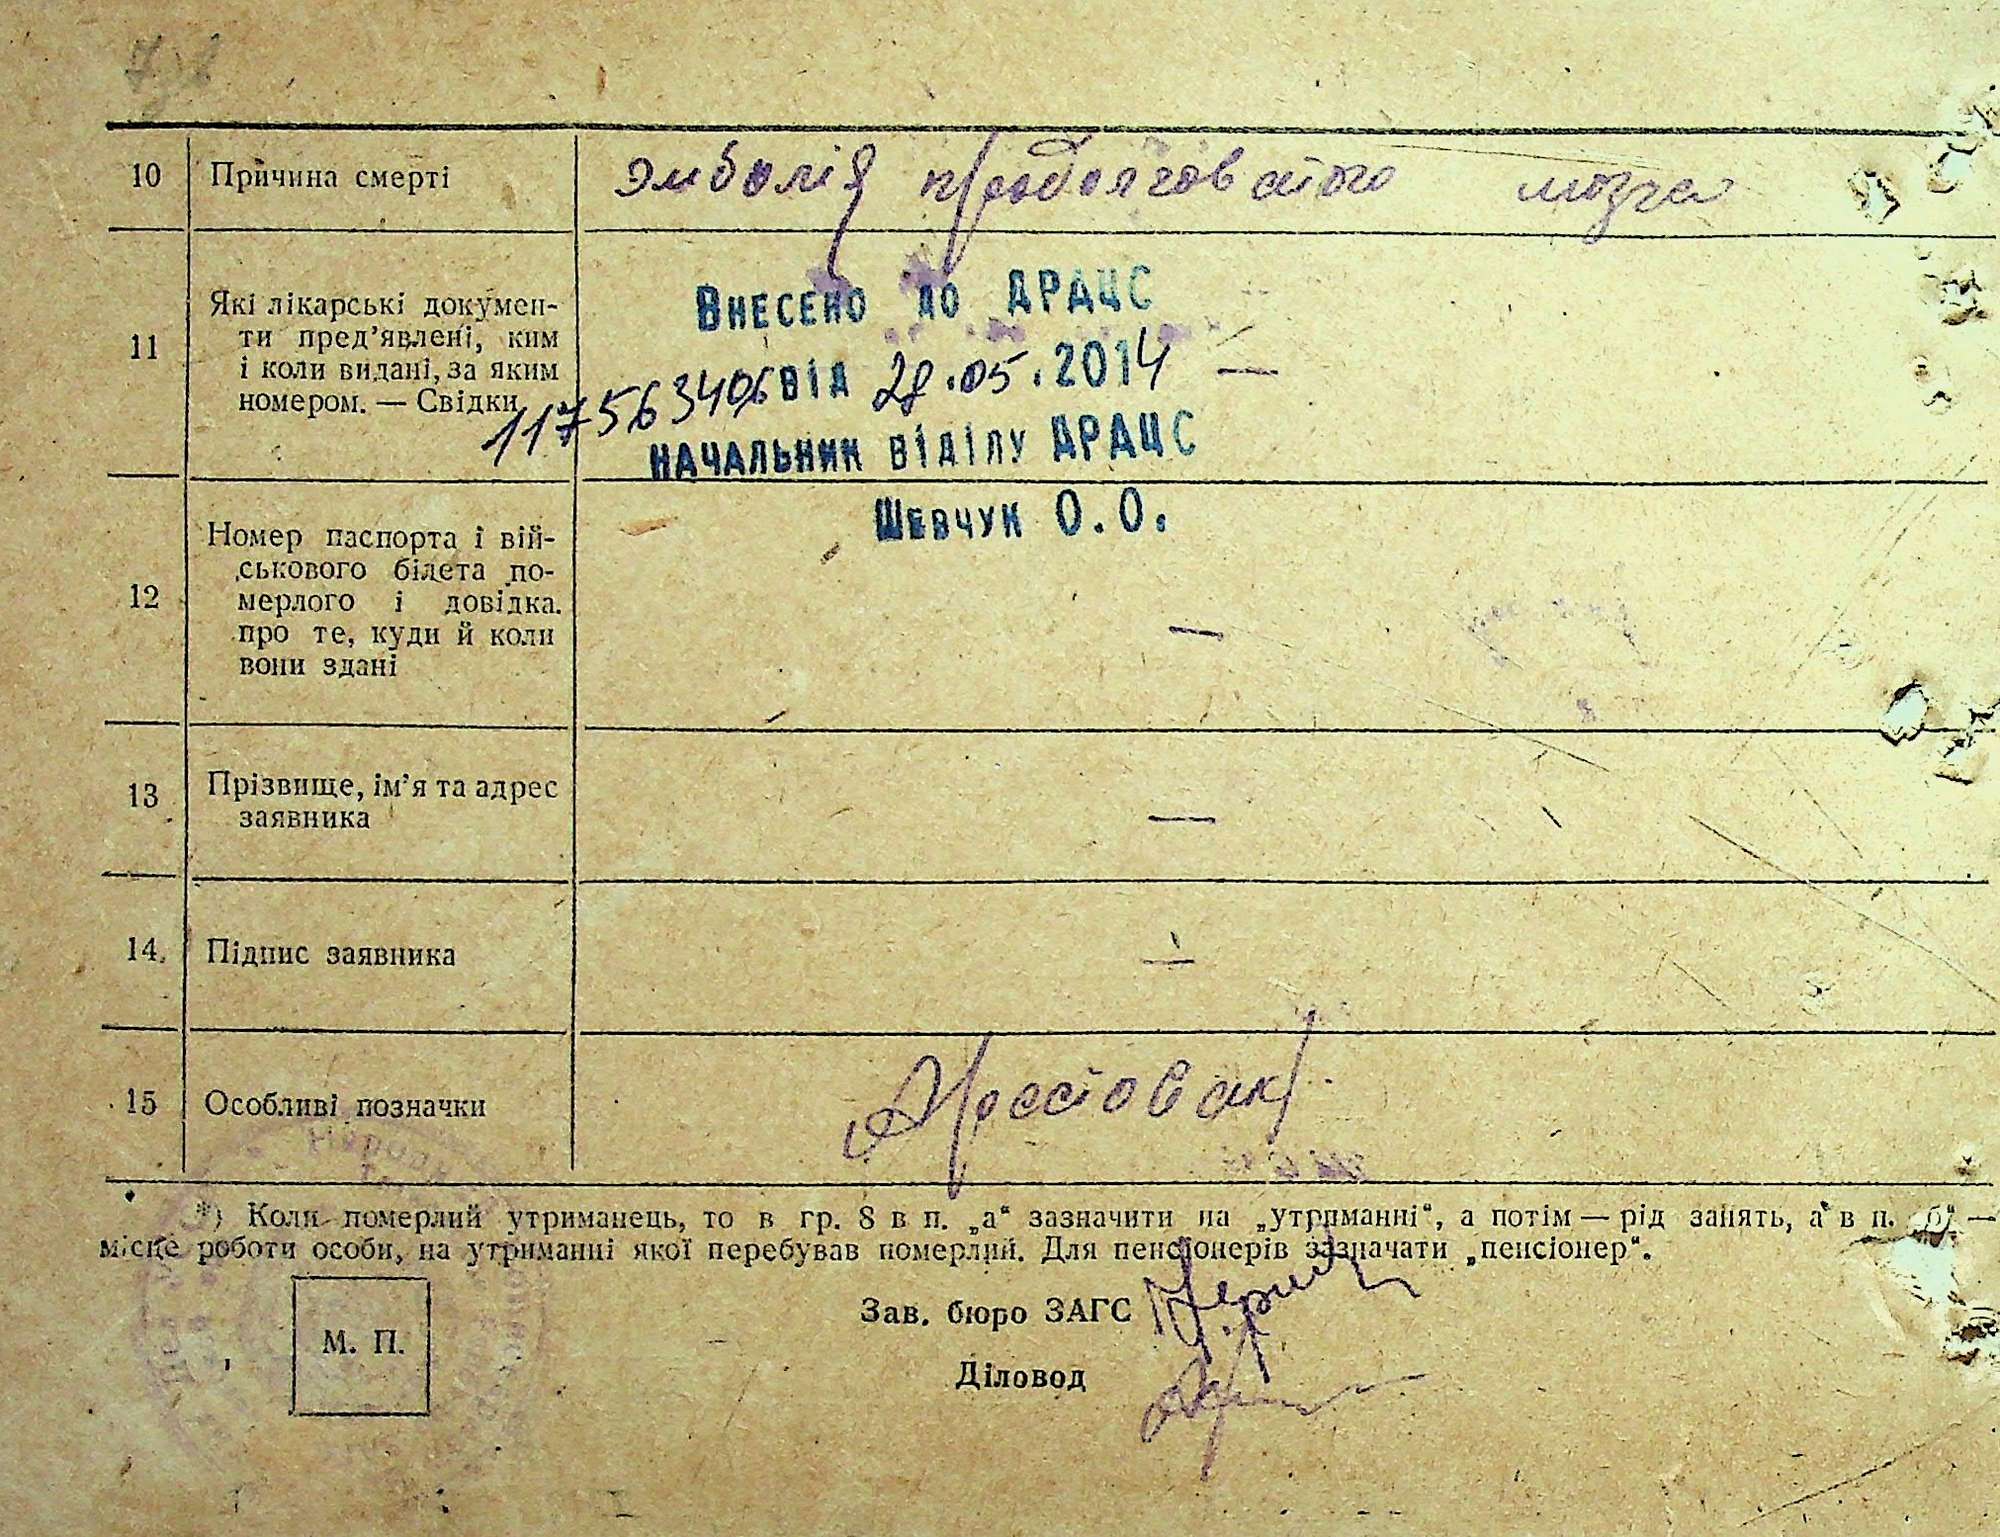 10 Причина смерті Эмболія продолговатого мозга
11 Які лікарські докумен-
ти пред’явлені, ким
і коли видані, за яким
номером. — Свідки
Внесено до ДРАЦС
117563406 від 28.05.2014 —
начальник відділу ДРАЦС
Шевчук О.О.
12 Номер паспорта і вій-
ськового білета по-
мерлого і довідка.
про те, куди й коли
вони здані —
13 Прізвище, ім’я та адрес
заявника —
14. Підпис заявника —
15 Особливі позначки
*) Коли померлий утриманець, то в гр. 8 в п. „а“ зазначити на „утрпманні“, а потім — рід занять, а в п. „б“ —
місце роботи особи, на утриманні якої перебував померлий. Для пенсіонерів зазначати „пенсіонер“.
Зав. бюро ЗАГС
М. П.
Діловод